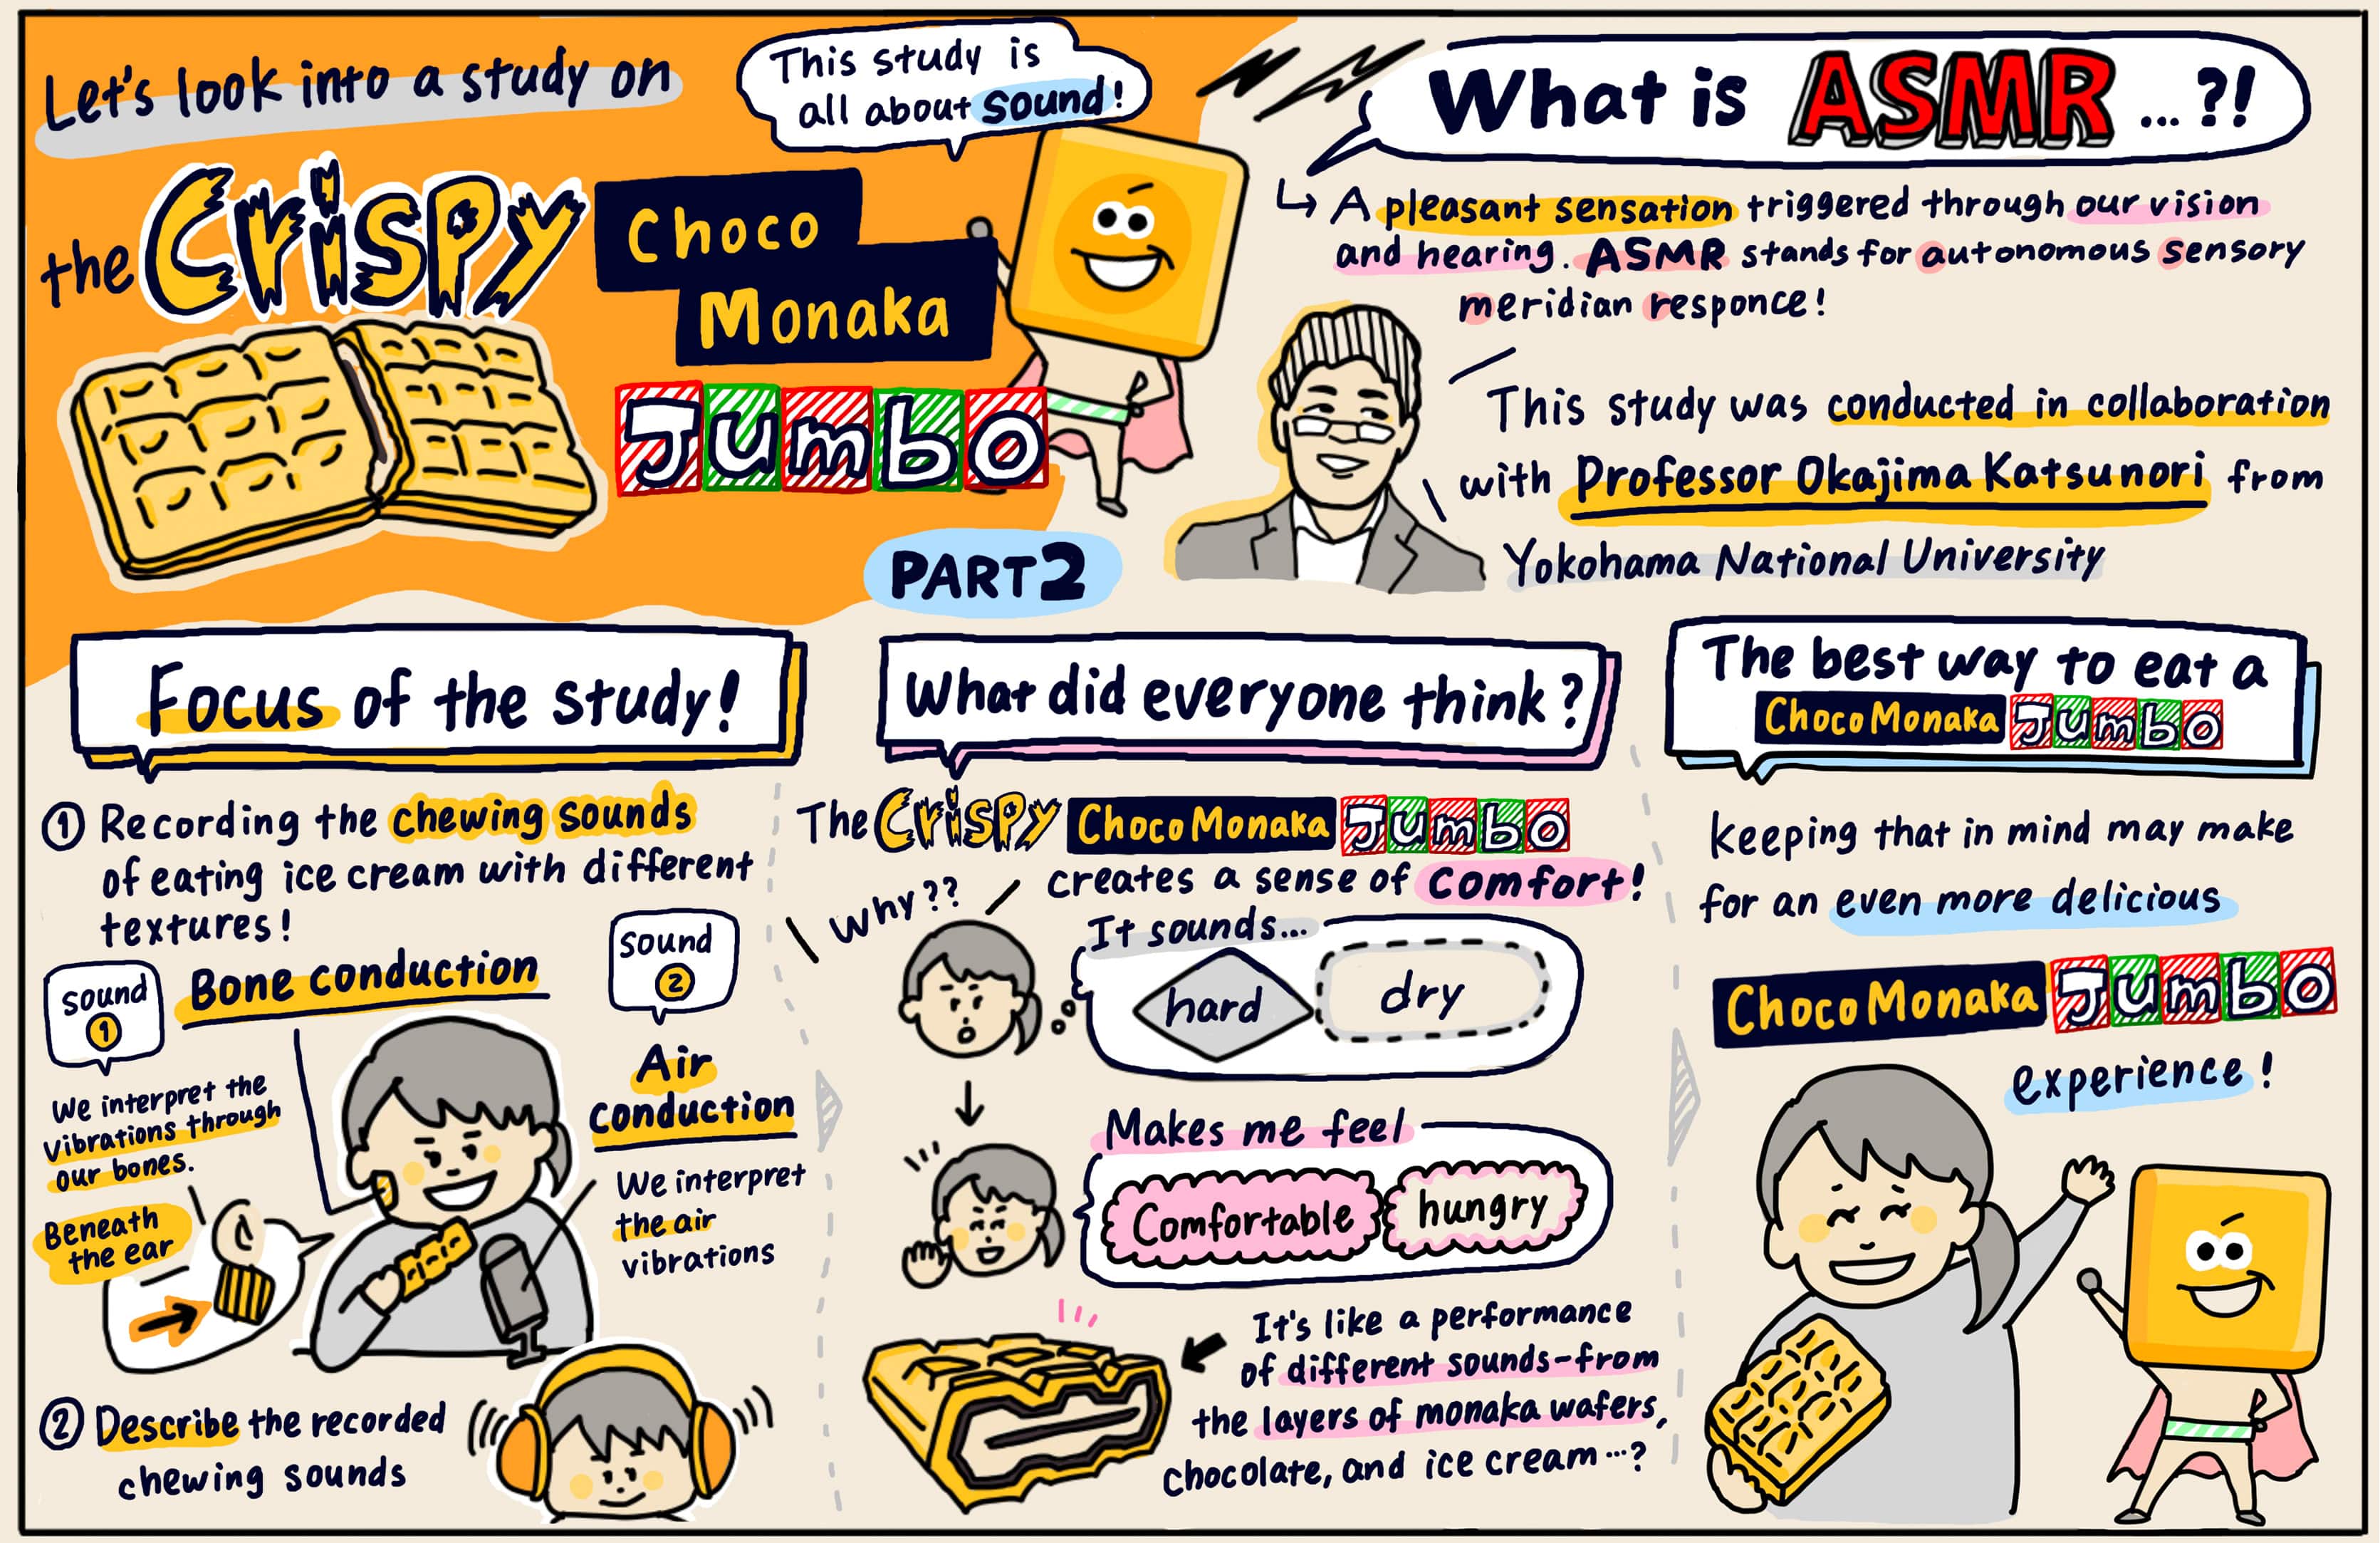 Let's look into a study on
the Crispy Choco
Monaka
Jumbo
This study is
all about sound!
PART2
What is ASMR ...?!
↳ A pleasant sensation triggered through our vision
and hearing. ASMR stands for autonomous sensory
meridian responce!
This study was conducted in collaboration
with Professor Okajima Katsunori from
Yokohama National University
Focus of the study!
① Recording the chewing sounds
of eating ice cream with different
textures!
Sound
①
Bone conduction
We interpret the
vibrations through
our bones.
Beneath
the ear
Sound
②
Air
conduction
We interpret
the air
vibrations
② Describe the recorded
chewing sounds
What did everyone think?
The Crispy Choco Monaka Jumbo
creates a sense of comfort!
Why??
It sounds...
hard dry
Makes me feel
Comfortable hungry
It's like a performance
of different sounds-from
the layers of monaka wafers,
chocolate, and ice cream...?
The best way to eat a
Choco Monaka Jumbo
keeping that in mind may make
for an even more delicious
Choco Monaka Jumbo
experience!